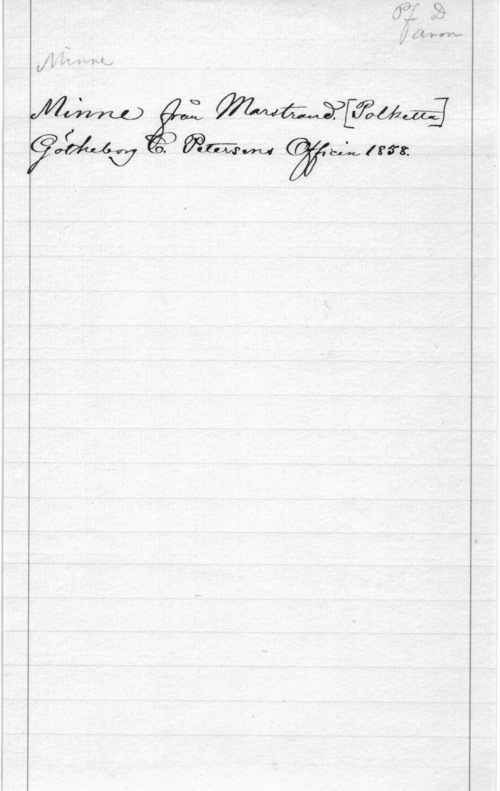 Pf D
anon
Minne
Minne från Marstrand. [Polketta]
Götheborg C. Petersens Officin 1858.